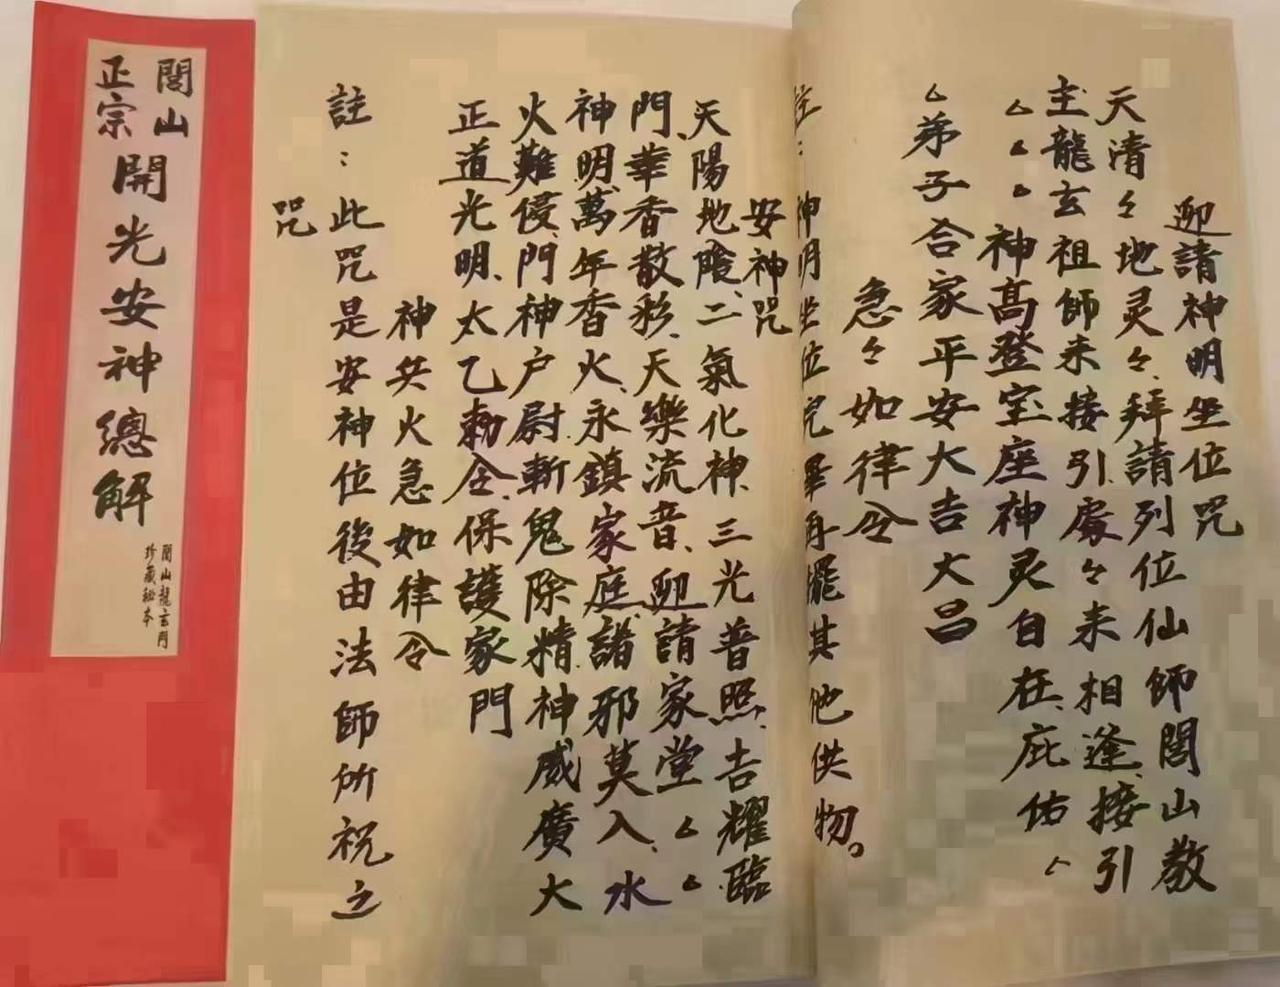 閭山
正宗
開光安神總解
閭山龍玄門
珍藏秘本
迎請神明坐位咒
天清々地灵々、拜請列位仙師閭山教
主龍玄祖師来接引、處々来相逢、接引
△△△神高登宝座神灵自在、庇佑△
△弟子合家平安大吉大昌
急々如律令
註：神明坐位完畢再擺其他供物。
安神咒
天陽地陰、二氣化神、三光普照、吉耀臨
門、華香散彩、天樂流音、迎請家堂△△
神明、萬年香火、永鎮家庭、諸邪莫入、水
火難侵、門神户尉、斬鬼除精、神威廣大
正道光明、太乙勅令、保護家門
神兵火急如律令
註：此咒是安神位後由法師所祝之
咒